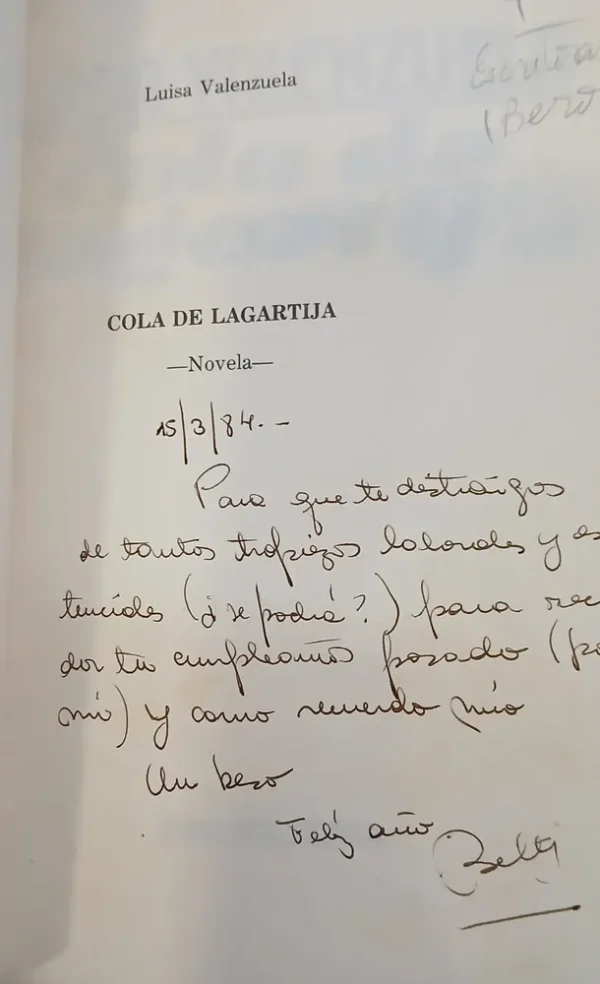 Luisa Valenzuela
Escritora
(Bero
COLA DE LAGARTIJA
—Novela—
15/3/84.-
Para que te destraigas
de tantos tropiezos laborales y es
tenciales (¿se podrá?) para rec
dar tu cumpleaños pasado (po
mío) y como recuerdo mío
Un beso
Feliz año